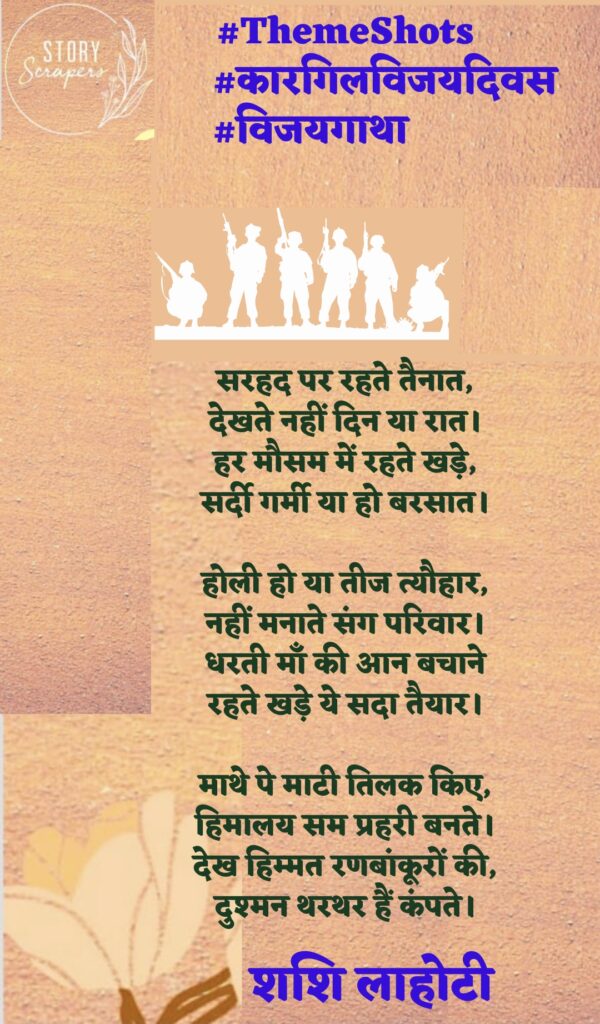 STORY
Scrapers
#ThemeShots
#कारगिलविजयदिवस
#विजयगाथा
सरहद पर रहते तैनात,
देखते नहीं दिन या रात।
हर मौसम में रहते खड़े,
सर्दी गर्मी या हो बरसात।
होली हो या तीज त्यौहार,
नहीं मनाते संग परिवार।
धरती माँ की आन बचाने
रहते खड़े ये सदा तैयार।
माथे पे माटी तिलक किए,
हिमालय सम प्रहरी बनते।
देख हिम्मत रणबांकूरों की,
दुश्मन थरथर हैं कंपते।
शशि लाहोटी